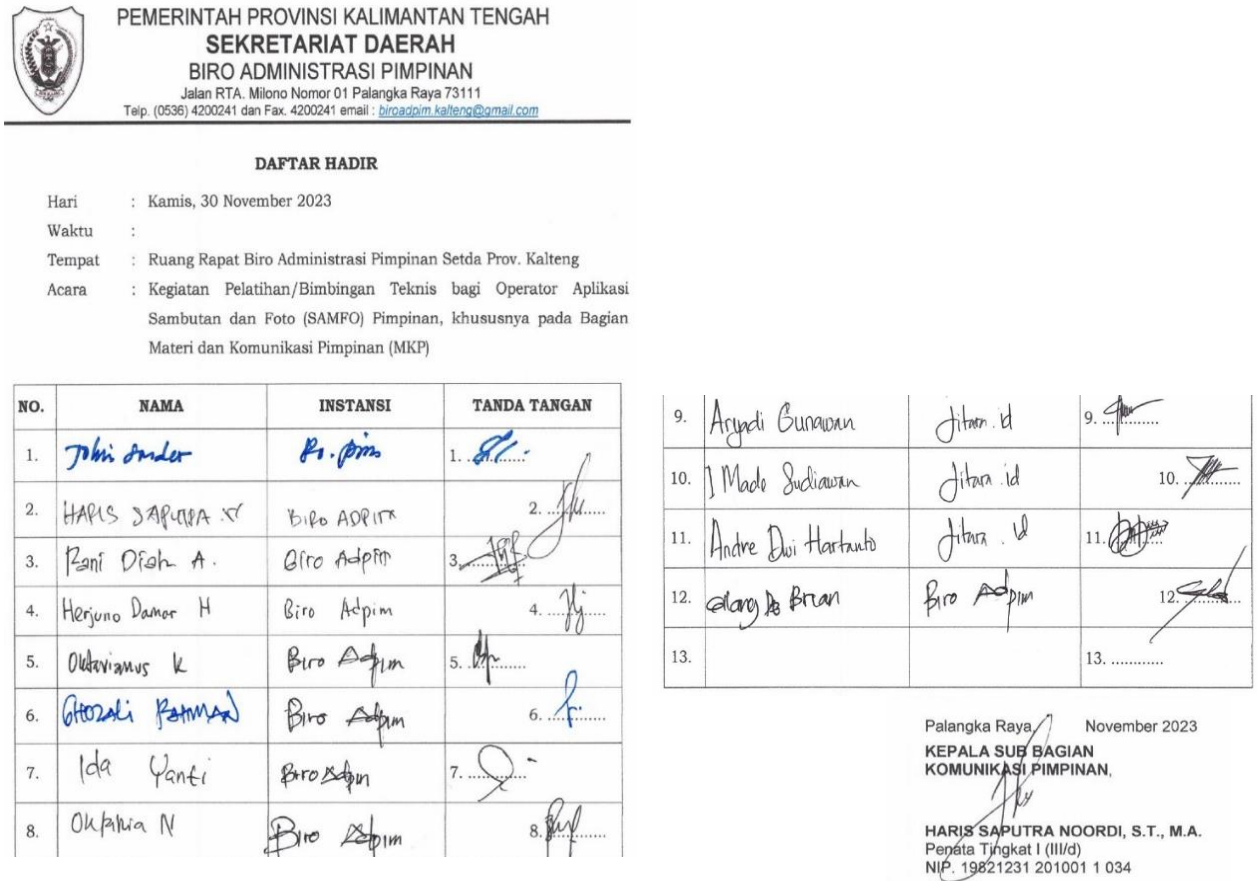 PEMERINTAH PROVINSI KALIMANTAN TENGAH
SEKRETARIAT DAERAH
BIRO ADMINISTRASI PIMPINAN
Jalan RTA. Milono Nomor 01 Palangka Raya 73111
Telp. (0536) 4200241 dan Fax. 4200241 email : biroadpim.kalteng@gmail.com
DAFTAR HADIR
Hari : Kamis, 30 November 2023
Waktu :
Tempat : Ruang Rapat Biro Administrasi Pimpinan Setda Prov. Kalteng
Acara : Kegiatan Pelatihan/Bimbingan Teknis bagi Operator Aplikasi
Sambutan dan Foto (SAMFO) Pimpinan, khususnya pada Bagian
Materi dan Komunikasi Pimpinan (MKP)
NO. NAMA INSTANSI TANDA TANGAN
1. 1. ............
2. HARIS SAPUTRA N BIRO ADPIM 2. ............
3. Rani Diah A. Biro Adpim 3. ............
4. Herjuno Damar H Biro Adpim 4. ............
5. Oktavianus K Biro Adpim 5. ............
6. GHOZALI RAHMAN Biro Adpim 6. ............
7. Ida Yanti Biro Adpim 7. ............
8. Oktavia N Biro Adpim 8. ............
9. Aryadi Gunawan Jitara.id 9. ............
10. I Made Sudiawan Jitara.id 10. ............
11. Andre Dwi Hartanto Jitara.id 11. ............
12. Brian Biro Adpim 12. ............
13. 13. ............
Palangka Raya, November 2023
KEPALA SUB BAGIAN
KOMUNIKASI PIMPINAN,
HARIS SAPUTRA NOORDI, S.T., M.A.
Penata Tingkat I (III/d)
NIP. 19821231 201001 1 034